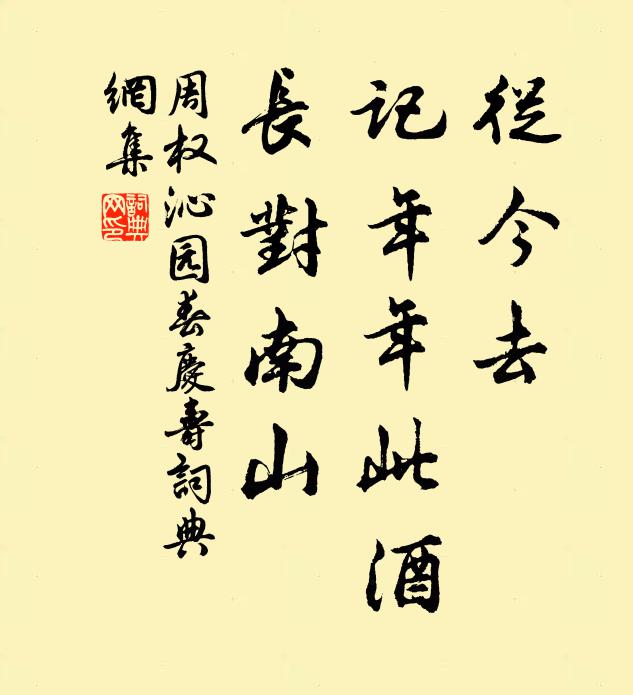 從今去
記年年此酒
長對南山
周权沁园春慶壽詞典
網集
詞典网印